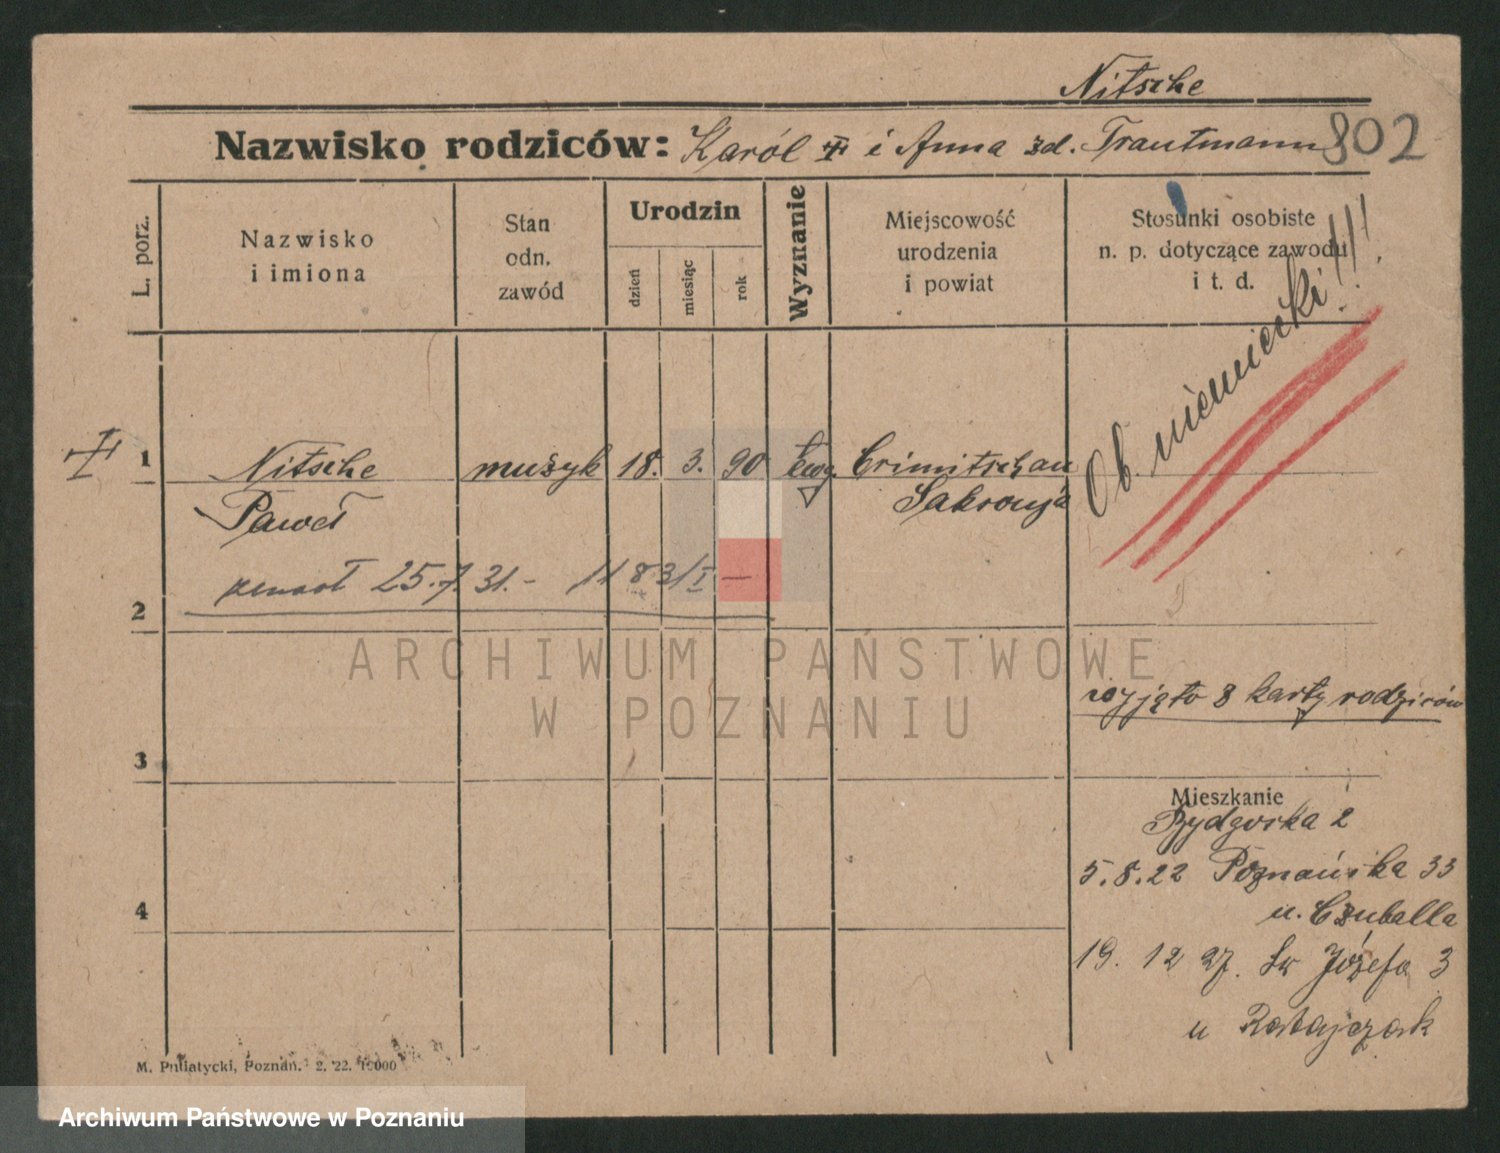 Nitsche
Nazwisko rodziców: Karól ✝ i Anna zd. Trautmann 802
L. porz.
Nazwisko i imiona
Stan odn. zawód
Urodzin
dzień
miesiąc
rok
Wyznanie
Miejscowość urodzenia i powiat
Stosunki osobiste
n. p. dotyczące zawodu
i t. d.
Ob. niemiecki!!!!
1 Nitsche muzyk 18. 3. 90 ewg. Crimitschau
Paweł Saksonja
zmarł 25.7.31.- 11831/I -
2
ARCHIWUM PAŃSTWOWE
W POZNANIU
wyjęto z karty rodziców
3
Mieszkanie
Bydgoska 2
5.8.22 Poznańska 33
u. Czuballa
4
19. 12 27. Św Józefa 3
u Ratajczak
M. Pniatycki, Poznań. 2. 22. 10000
Archiwum Państwowe w Poznaniu